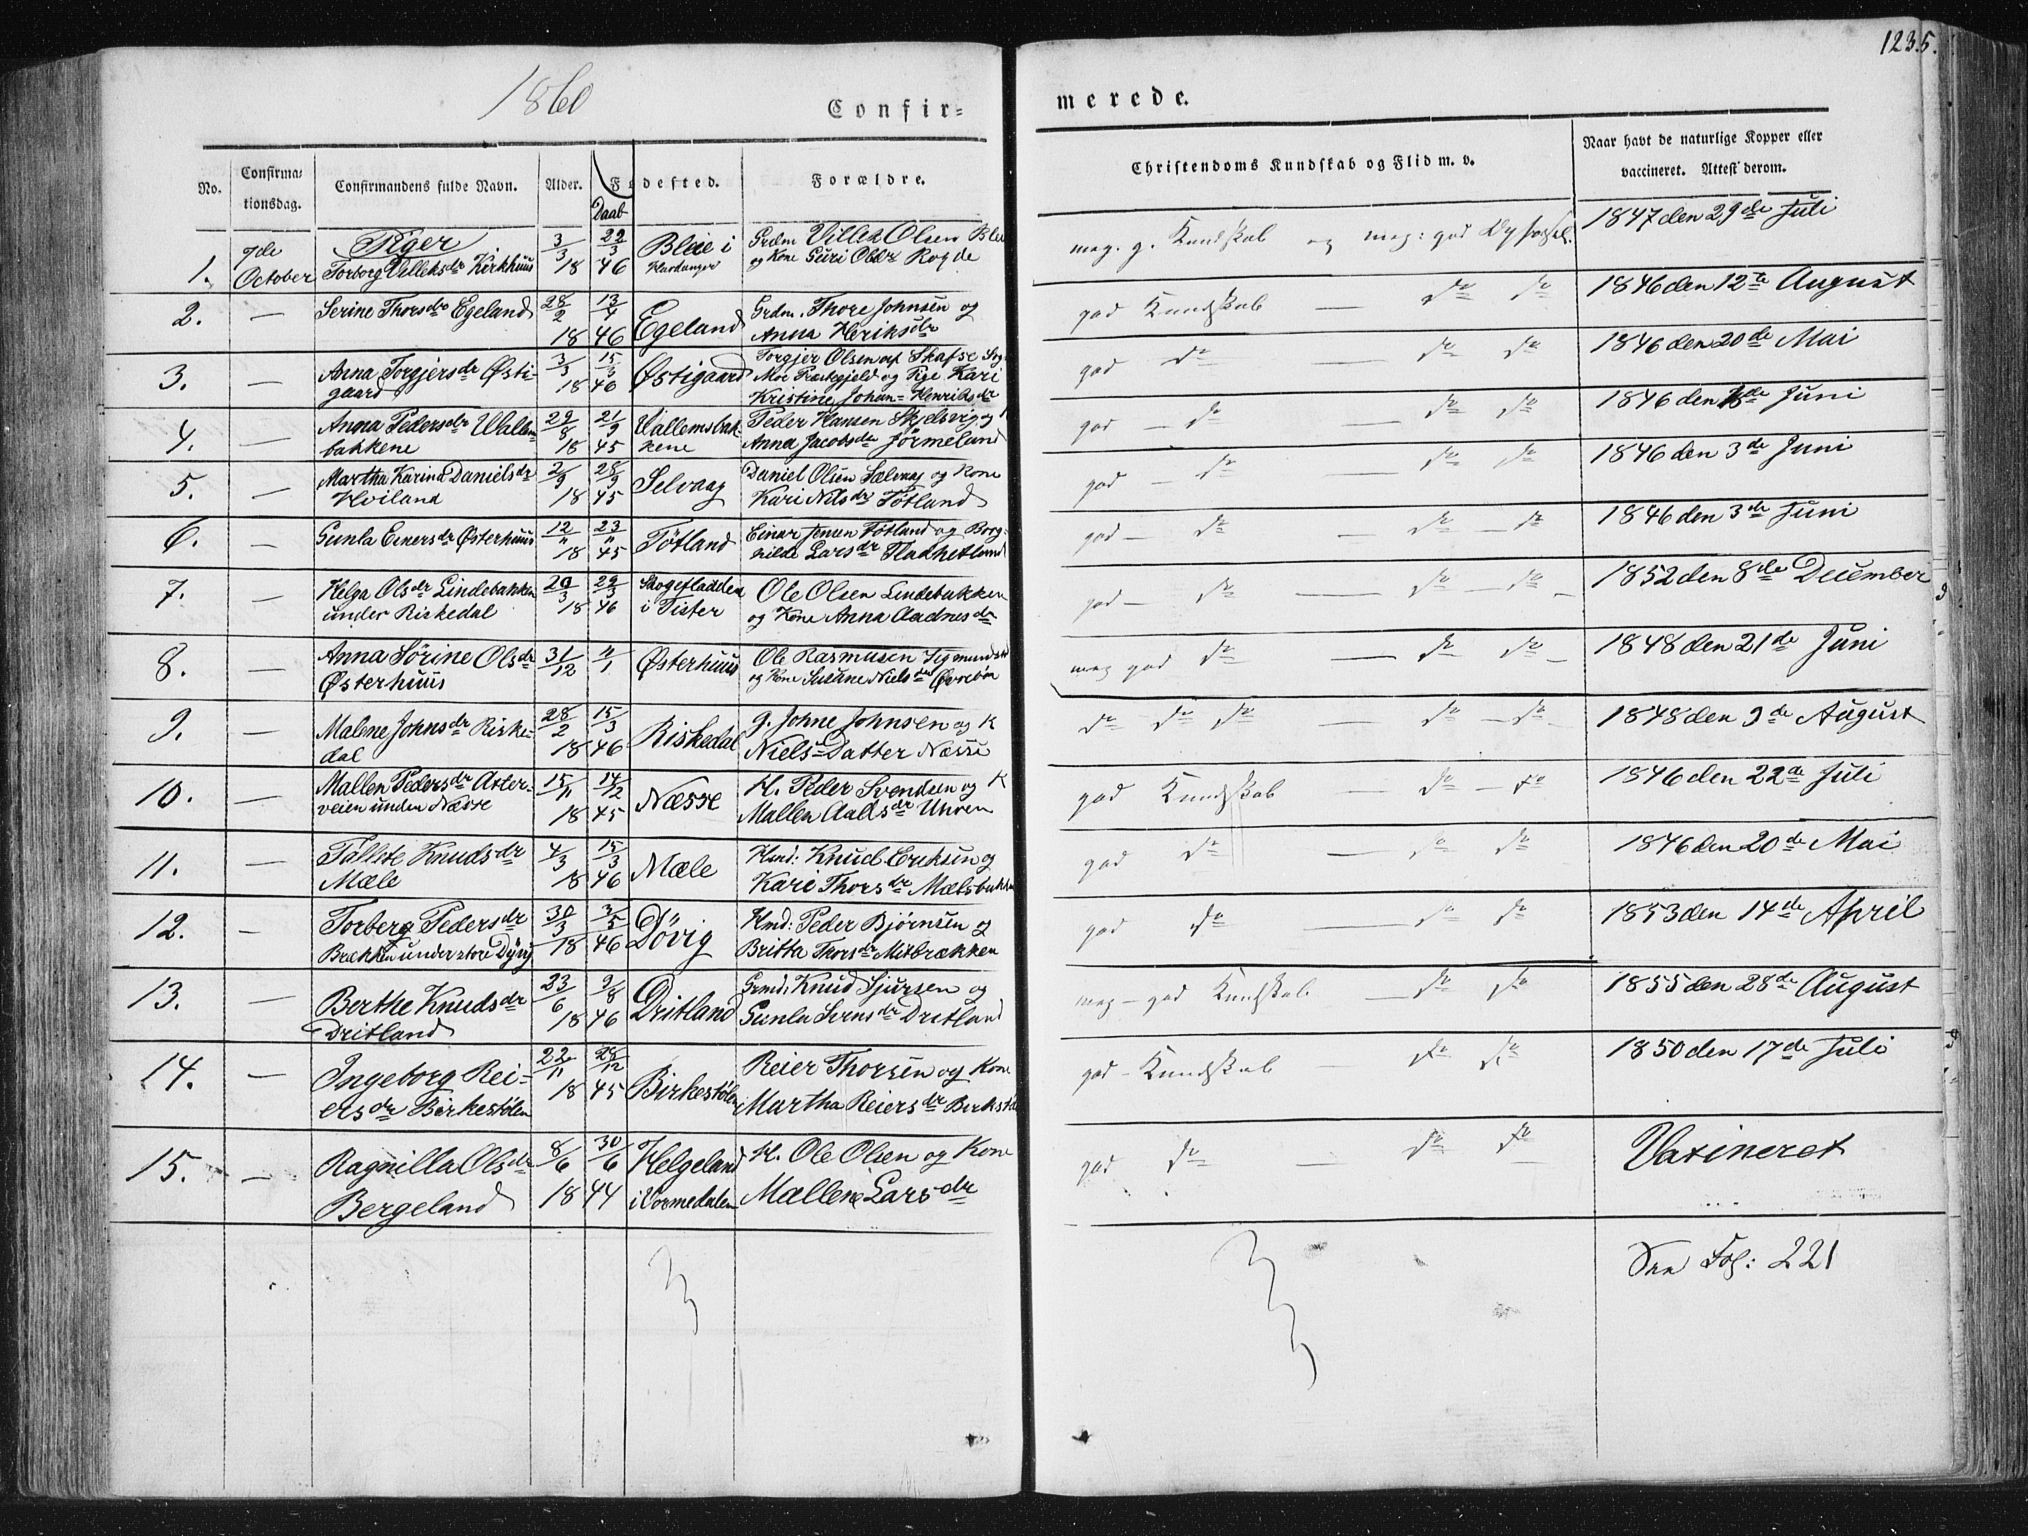 1235.
1860
Confir=
merede.
No.
Confirma=
tionsdag.
Confirmandens fulde Navn.
Alder.
Fødested.
Daab
Forældre.
Christendoms Kundskab og Flid m. v.
Naar havt de naturlige Kopper eller
vaccineret. Attest derom.
Piger
1. 7de October Torborg Villeksdr Kirkhuus 3/3 18 22/3 46 Bleie i Hardanger Grdm Villek Olsen Blei og Kone Guri Olsdr Rogde meg. g. Kundskab og meg: god 1847 den 29de Juli
2. — Serine Thorsdr Egeland 28/2 18 13/4 46 Egeland Grdm. Thore Johnsen og Anna Heriksdr god Kundskab — do do 1846 den 12te August
3. — Anna Torgjersdr Østi- gaard 3/3 18 15/3 46 Østigaard Torgjer Olsen af Skafse Sog Moe Præstegjeld og Pige Kari Kristine Johan= Henriksdr god do — do do 1846 den 20de Mai
4. — Anna Pedersdr Wallem bakkene 29/8 18 21/9 45 Wallemsbak- kene Peder Hansen Skjelsvig og Anna Jacobsdr Jørmeland god — do — do do 1846 den Juni
5. — Martha Karina Danielsdr Hviland 2/9 18 28/9 45 Selvaag Daniel Olsen Sælvaag og Kone Kari Nilsdr Tøtland god — do — do do 1846 den 3de Juni
6. — Gunla Einersdr Østerhuus 12/11 18 23/11 45 Tøtland Einar Jensen Tøtland og Borg- hilde Larsdr Fladhetland god — do — do — do 1846 den 3de Juni
7. — Helga Olsdr Lindebakken under Riskedal 20/3 18 29/3 46 Skogefladden i Fister Ole Olsen Lindebakken og Kone Anna Aadnesdr god — do — do — do — 1852 den 8de December
8. — Anna Sørine Olsdr Østerhuus 31/12 11/1 Østerhuus Ole Rasmusen Sigmundstd og Kone Susanne Nielsdr Øvrebøe meg god do — do do — 1848 den 21de Juni
9. — Malene Johnsdr Riske- dal 28/2 18 15/3 46 Riskedal g. Johne Johnsen og K Niels=Datter Næsse do do do — do — do 1848 den 9de August
10. — Mallen Pedersdr Aster- veien under Næsse 15/11 18 14/12 45 Næsse H. Peder Svendsen og K Mallen Aadsdr Uhren god Kundskab — do — do 1846 den 22de Juli
11. — Tallete Knudsdr Mæle 4/3 18 15/3 46 Mæle Hmd: Knud Eriksen og Kari Thorsdr Mælsbakken god do — do do 1846 den 20de Mai
12. — Torberg Pedersdr Brækken under store Døvig 30/3 18 3/5 46 Døvig Hmd: Peder Bjørnsen og Britta Thorsdr Mitbrækken god do — do do 1853 den 14de April
13. — Berthe Knudsdr Dritland 23/6 18 9/8 46 Dritland Grmd: Knud Sjursen og Gunla Svensdr Dritland meg — god Kundskab — do do 1855 den 28de August
14. — Ingeborg Rei- ersdr Birkestølen 22/11 18 28/12 45 Birkestølen Reier Thorsen og Kone Martha Reiersdr Birkestøl god — Kundskab — do do 1850 den 17de Juli
15. — Ragnilla Olsdr Bergeland 8/6 18 30/6 44 Helgeland i Vormedalen H. Ole Olsen og Kone Mallene Larsdr god do — do do Vaxineret
See Fol: 221